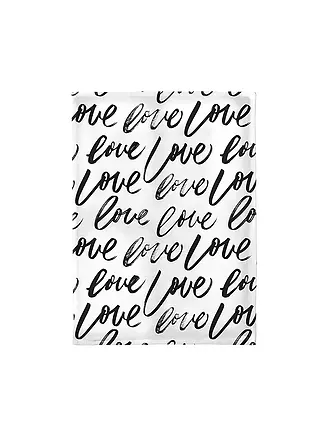 Love love Love
love Love love
Love love Love
love love lo
Love love Love
love Love love
Love love Love